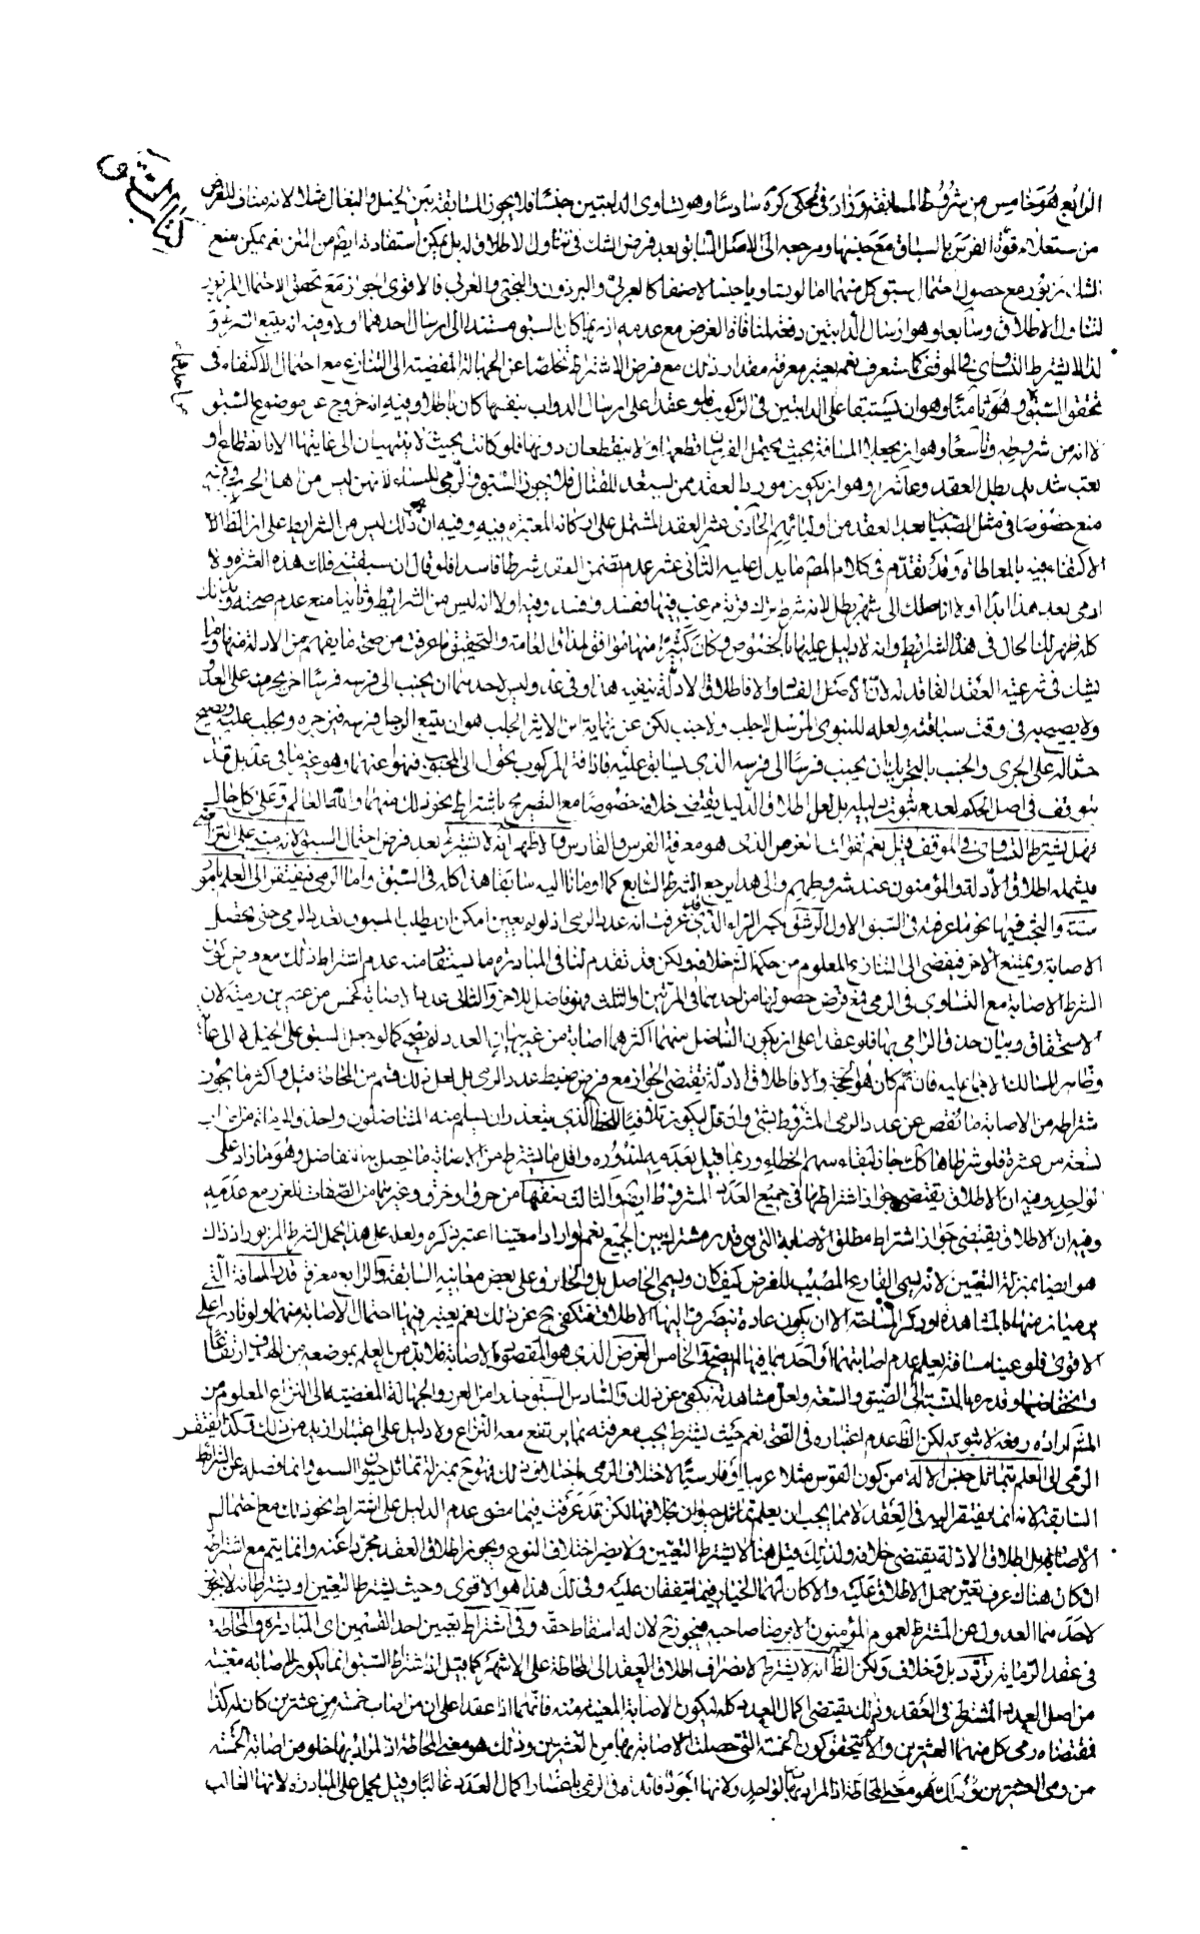 كتاب السبق
الرابع هو خامس من شروط المسابقة وزاد في محكى كره سادسا وهو تساوى الدابتين جنسا فلا يجوز المسابقة بين الخيل والبغال مثلا لانه مناف للغرض
من استعلام قوة الفرس بالسباق مع جنسها ومرجعه الى الاصل السابق بعد فرض الشك في تناول الاطلاق له بل يمكن استفادته ايضا من المتن نعم يمكن منع
الشك المزبور مع حصول احتمال سبق كل منهما اما لو تساويا جنسا لا صنفا كالعربى والبرذون والبختى والعرابى فالاقوى الجواز مع تحقق الاحتمال المزبور
لتناول الاطلاق وسابعا وهو ارسال الدابتين دفعة لمنافاة الغرض مع عدمه اذ ربما كان السبق مستندا الى ارسال احدهما اولا وفيه انه يتبع الشرط و
لذا لا يشترط التساوى في الموقف كما ستعرف نعم يعتبر معرفة مقدار ذلك مع فرض الاشتراط تخلصا عن الجهالة المفضية الى التنازع مع احتمال الاكتفاء في
تحقق السبق وهو ثامنا وهو ان يستبقا على الدابتين في الركوب فلو عقدا على ارسال الدواب بنفسها كان باطلا وفيه انه خروج عن موضوع السبق
لا انه من شرايطه وتاسعا وهو ان يجعلا المسافة بحيث يحتمل الفرسان قطعها ولا ينقطعان دونها فلو كانت بحيث لا ينتهيان الى غايتها الا بانقطاع او
تعب شديد بطل العقد وعاشرا وهو ان يكون مورد العقد ممن يستعد للقتال فلا يجوز السبق والرمى للنساء لانهن ليس من اهل الحرب وفيه
منع خصوصا في مثل الصبيان بعد العقد من اوليائهم الحادى عشر العقد المشتمل على اركانه المعتبرة فيه وفيه ان ذلك ليس من الشرايط على ان الظ الا
الاكتفاء فيه بالمعاطاة وقد تقدم في كلام المصم ما يدل عليه الثانى عشر عدم تضمن العقد شرطا فاسدا فلو قال ان سبقتنى فلك هذه العشرة ولا
ارمى بعد هذا ابدا او لا اناضلك الى شهر بطل لانه شرط ترك قربة مرغب فيها ففسد وفسد وفيه اولا انه ليس من الشرائط وثانيا منع عدم صحته وبذلك
كله ظهر لك الحال في هذه الشرايط وانه لا دليل عليها بالخصوص وكان كثيرا منها موافق لمذاق العامة والتحقيق ما عرفت من صحة ما يفهم من الادلة منها وما
يشك في شرعية العقد الفاقد له لان الاصل الفساد والا فاطلاق الادلة ينفيه هذا وفى عد وليس لاحدهما ان يجنب الى فرسه فرسا اخر يحرضه على العدو
ولا يصيح به في وقت سباقه ولعله للنبوى المرسل لا جلب ولا جنب لكن عن نهاية ابن الاثير الجلب هو ان يتبع الرجل فرسه فيزجره ويجلب عليه ويصيح
حثا له على الجرى والجنب بالتحريك ان يجنب فرسا الى فرسه الذى يسابق عليه فاذا فتر المركوب تحول الى المجنوب فنهوا عنهما وهو غير ما في عد بل قد
يتوقف في اصل الحكم لعدم ثبوت دليله بل لعل اطلاق الدليل يقتضى خلافه خصوصا مع التصريح باشتراط نحو ذلك منهما والله العالم وعلى كل حال
فهل يشترط التساوى في الموقف قيل نعم لفوات الغرض الذى هو معرفة الفرس والفارس والاظهر انه لا يشترط بعد فرض احتمال السبق لانه مبنى على التراضى
فيشمله اطلاق الادلة والمؤمنون عند شروطهم والى هذا يرجع الشرط السابع كما اومأنا اليه سابقا هذا كله في السبق واما الرمى فيفتقر الى العلم بامور
ستة والبحث فيها نحو ما عرفته في السبق الاول الرشق بكسر الراء الذى قد عرفت انه عدد الرمى اذ لو لم يعين امكن ان يطلب المسبوق تعدد الرمى حتى تحصل
الاصابة ويمتنع الاخر فيفضى الى التنازع المعلوم من حكمة الشرع خلافه ولكن قد تقدم لنا في المبادرة ما يستفاد منه عدم اشتراط ذلك مع فرض كون
الشرط الاصابة مع التساوى في الرمى فمع فرض حصولها من احدهما في المرتين او الثلث فهو فاضل للاخر والثانى عدد الاصابة كخمس من عشر رمية لان
الاستحقاق وبيان حذق الرامى بها فلو عقدا على ان يكون الفاضل منهما اكثرهما اصابة من غير بيان العدد لم يصح كما لو جعل السبق على الخيل لا الى غاية
وظاهر المسالك الاجماع عليه فان تم كان هو الحجة والا فاطلاق الادلة يقتضى الجواز مع فرض ضبط عدد الرمى بل لعل ذلك قسم من المحاطة قيل واكثر ما يجوز
اشتراطه من الاصابة ما نقص عن عدد الرمى المشروط بشئ وان قل ليكون تلافيا للخطأ الذى يتعذر ان يسلم منه المتناضلون واحذق الرماة من اصاب
تسعة من عشرة فلو شرطاها كك جاز لبقاء سهم الخطاء وربما قيل بعدمه لندوره واقل ما يشترط من الاصابة ما يحصل به التفاضل وهو ما زاد على
الواحد وفيه ان الاطلاق يقتضى جواز اشتراطها في جميع العدد المشروط ايضا والثالث صفتها من خرق او خزق وغيرهما من الصفات للغرر مع عدمه
وفيه ان الاطلاق يقتضى جواز اشتراط مطلق الاصابة التى هى قدر مشترك بين الجميع نعم لو اراد معينا اعتبر ذكره ولعله على هذا يحمل الشرط المزبور اذ ذاك
هو ايضا بمنزلة التعيين لانه يسمى القارع المصيب للغرض كيف كان ويسمى الحاصل بل والخارق على بعض معانيه السابقة والرابع معرفة قدر المسافة التى
يرميان منها اما بالمشاهدة او ذكر المساحة الا ان يكون عادة تنصرف اليها الاطلاق فتكفى ح عن ذلك نعم يعتبر فيها احتمال الاصابة منهما ولو نادرا على
الاقوى فلو عينا مسافة يعلم عدم اصابتهما او احدهما فيها لم يصح والخامس الغرض الذى هو المقصود بالاصابة فلا بد من العلم بموضعه من الهدف ارتفاعا
وانخفاضا وقدره بالنسبة الى الضيق والسعة ولعل مشاهدته تكفى عن ذلك والسادس السبق حذرا من الغرر والجهالة المفضية الى النزاع المعلوم من
الشرع ارادة رفعه لا ثبوته لكن الظ عدم اعتباره في الصحة نعم حيث يشترط يجب معرفته بما يرتفع معه النزاع ولا دليل على اعتبار ازيد من ذلك وكذا يفتقر
الرمى الى العلم بتماثل جنس الالة من كون القوس مثلا عربيا او فارسيا لاختلاف الرمى باختلاف ذلك فهو ح بمنزلة تماثل حيوان السبق وانما فصله عن الشرائط
السابقة لانه انما يفتقر اليه في العقد لا مما يجب ان يعلم تماثل حيوان بخلافها لكن قد عرفت فيما مضى عدم الدليل على اشتراط نحو ذلك مع احتمال
الاصابة بل اطلاق الادلة يقتضى خلافه ولذلك قيل هنا لا يشترط التعيين ولا يضر اختلاف النوع ويجوز اطلاق العقد مجردا عنه وانما يتم مع اشتراطه
ان كان هناك عرف تعين حمل الاطلاق عليه والا كان لهما الخيار فيما يتفقان عليه وفى لك هذا هو الاقوى وحيث يشترط التعيين او يشترطانه لا يجوز
لاحدهما العدول عن المشترط لعموم المؤمنون الا برضا صاحبه فيجوز ح لان له اسقاط حقه وفى اشتراط تعيين احد القسمين اى المبادرة والمحاطة
في عقد الرماية تردد بل وخلاف ولكن الظ انه لا يشترط لانصراف اطلاق العقد الى المحاطة على الاشهر كما قيل اذ اشتراط السبق انما يكون لاصابة معينة
من اصل العدد المشترط في العقد وذلك يقتضى اكمال العدد كله ليكون الاصابة المعينة منه فانهما اذا عقدا على ان من اصاب خمسة من عشرين كان له كذا
فمقتضاه رمى كل منهما العشرين والا لم يتحقق كون الخمسة التى حصلت الاصابة بها من العشرين وذلك هو معنى المحاطة اذ المراد بها خلو من اصابة الخمسة
من رمى العشرين وذلك هو معنى المحاطة اذ المراد بها لواحد ولانها اجود فائدة في الرمى باعتبار اكمال العدد غالبا وقيل يحمل على المبادرة لانها الغالب